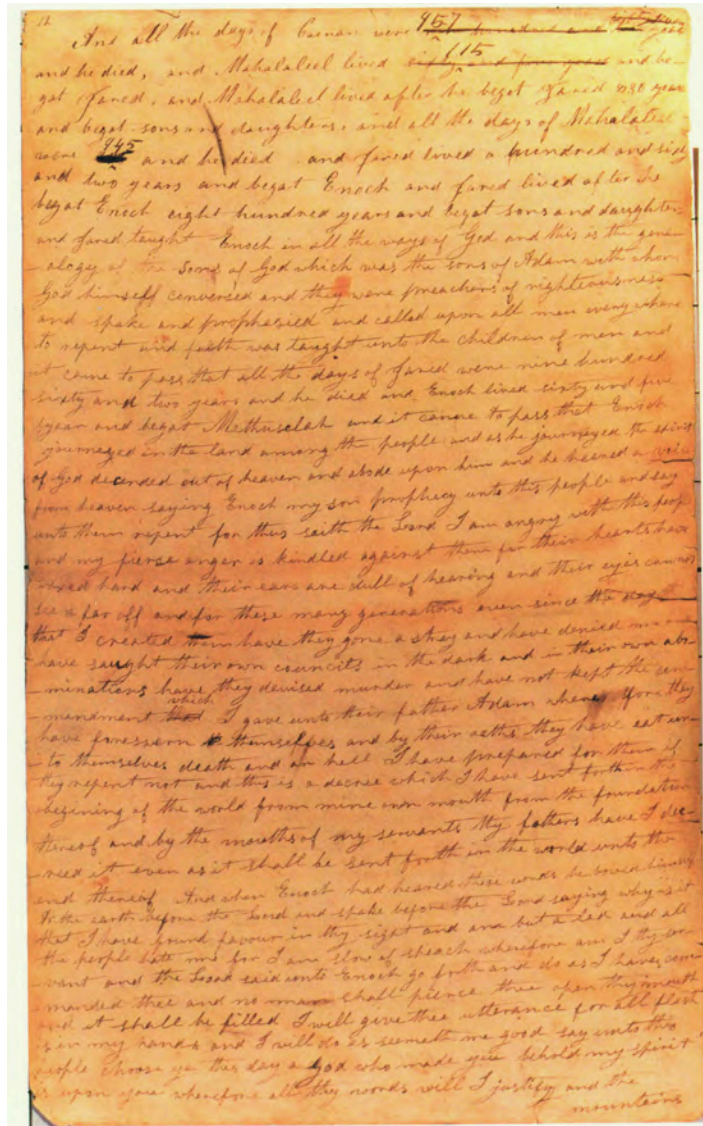 12
And all the days of Cainan were 957 hundred and ten years
and he died, and Mahalaleel lived sixty and five years 615 and be-
gat Jared, and Mahalaleel lived after he begat Jared 830 years
and begat sons and daughters, and all the days of Mahalaleel
were 945 and he died and Jared lived a hundred and sixty
and two years and begat Enoch and Jared lived after he
begat Enoch eight hundred years and begat sons and daughters
and Jared taught Enoch in all the ways of God and this is the gene
-alogy of the sons of God which was the sons of Adam with whom
God himself conversed and they were preachers of righteousness
and spake and prophesied and called upon all men everywhere
to repent and faith was taught unto the children of men and
it came to pass that all the days of Jared were nine hundred
sixty and two years and he died and Enoch lived sixty and five
years and begat Methuselah and it came to pass that Enoch
journeyed in the land among the people and as he journeyed the spirit
of God decended out of heaven and abode upon him and he heared a voice
from heaven saying Enoch my son prophecy unto this people and say
unto them repent for thus saith the Lord I am angry with this people
and my fierse anger is kindled against them for their hearts have
waxed hard and their ears are dull of hearing and their eyes cannot
see a far off and for these many generations even since the day
that I created them have they gone a stray and have denied me and
have saught their own councils in the dark and in their own abo-
-minations have they devised murder and have not kept the com-
mandment that which I gave unto their father Adam where fore they
have foresworn themselves and by their oaths they have eat un-
-to themselves death and an hell I have prepared for them if
they repent not and this is a decree which I have sent forth in the
begining of the world from mine own mouth from the foundation
thereof and by the mouths of my servants thy fathers have I dec-
reed it even as it shall be sent forth in the world unto the
end thereof And when Enoch had heared these words he bowed himself
to the earth before the Lord and spake before the Lord saying why is it
that I have found favour in thy sight and am but a lad and all
the people hate me for I am slow of speach wherefore am I thy ser-
vant and the Lord said unto Enoch go forth and do as I have com
manded thee and no man shall pierce thee open thy mouth
and it shall be filled I will give thee utterance for all flesh
is in my hands and I will do as seemeth me good say unto this
people choose ye this day a God who made you behold my spirit
is upon you wherefore all thy words will I justify and the
mountains